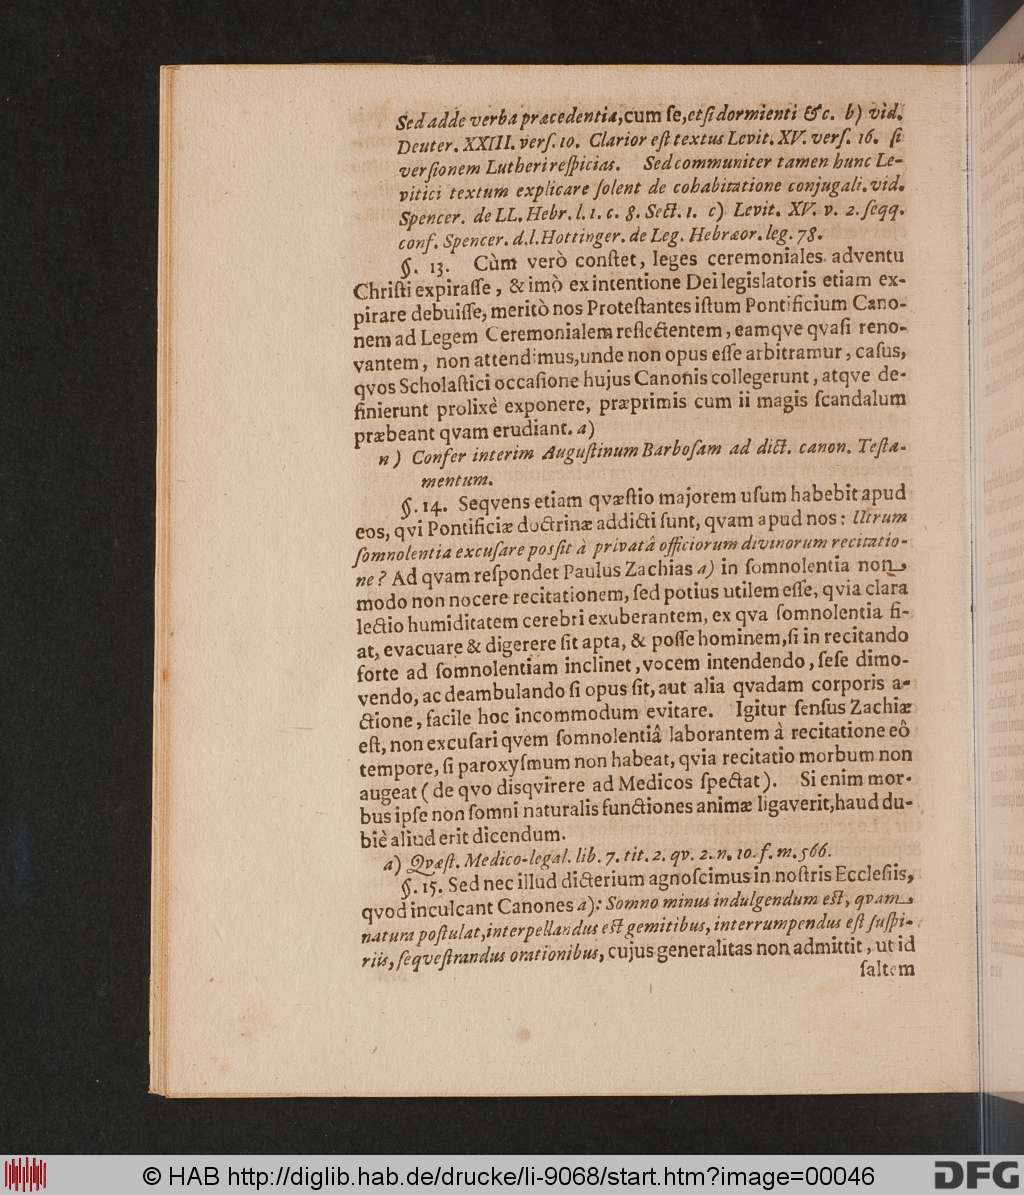 Sed adde verba præcedentia, cum ſe, etſi dormienti &c. b) vid.
Deuter. XXIII. verſ. 10. Clarior eſt textus Levit. XV. verſ. 16. ſi
verſionem Lutheri reſpicias. Sed communiter tamen hunc Le-
vitici textum explicare ſolent de cohabitatione conjugali. vid.
Spencer. de LL. Hebr. l. 1. c. 8. Sect. 1. c) Levit. XV. v. 2. ſeqq.
conf. Spencer. d. l. Hottinger. de Leg. Hebræor. leg. 78.
§. 13. Cùm verò conſtet, leges ceremoniales adventu
Chriſti expiraſſe, & imò ex intentione Dei legislatoris etiam ex-
pirare debuiſſe, meritò nos Proteſtantes iſtum Pontificium Cano-
nem ad Legem Ceremonialem reflectentem, eamqve qvaſi reno-
vantem, non attendimus, unde non opus eſſe arbitramur, caſus,
qvos Scholaſtici occaſione hujus Canonis collegerunt, atqve de-
finierunt prolixè exponere, præprimis cum ii magis ſcandalum
præbeant qvam erudiant. a)
n) Confer interim Auguſtinum Barboſam ad dict. canon. Teſta-
mentum.
§. 14. Seqvens etiam qvæſtio majorem uſum habebit apud
eos, qvi Pontificiæ doctrinæ addicti ſunt, qvam apud nos: Utrum
ſomnolentia excuſare posſit à privatâ officiorum divinorum recitatio-
ne? Ad qvam reſpondet Paulus Zachias a) in ſomnolentia non
modo non nocere recitationem, ſed potius utilem eſſe, qvia clara
lectio humiditatem cerebri exuberantem, ex qva ſomnolentia fi-
at, evacuare & digerere ſit apta, & poſſe hominem, ſi in recitando
forte ad ſomnolentiam inclinet, vocem intendendo, ſeſe dimo-
vendo, ac deambulando ſi opus ſit, aut alia qvadam corporis a-
ctione, facile hoc incommodum evitare. Igitur ſenſus Zachiæ
eſt, non excuſari qvem ſomnolentiâ laborantem à recitatione eô
tempore, ſi paroxyſmum non habeat, qvia recitatio morbum non
augeat (de qvo disqvirere ad Medicos ſpectat). Si enim mor-
bus ipſe non ſomni naturalis functiones animæ ligaverit, haud du-
biè aliud erit dicendum.
a) Qvæſt. Medico-legal. lib. 7. tit. 2. qv. 2. n. 10. f. m. 566.
§. 15. Sed nec illud dicterium agnoſcimus in noſtris Eccleſiis,
qvod inculcant Canones a): Somno minus indulgendum eſt, qvam
natura poſtulat, interpellandus eſt gemitibus, interrumpendus eſt ſuſpi-
riis, ſeqveſtrandus orationibus, cujus generalitas non admittit, ut id
ſaltem
© HAB http://diglib.hab.de/drucke/li-9068/start.htm?image=00046
DFG